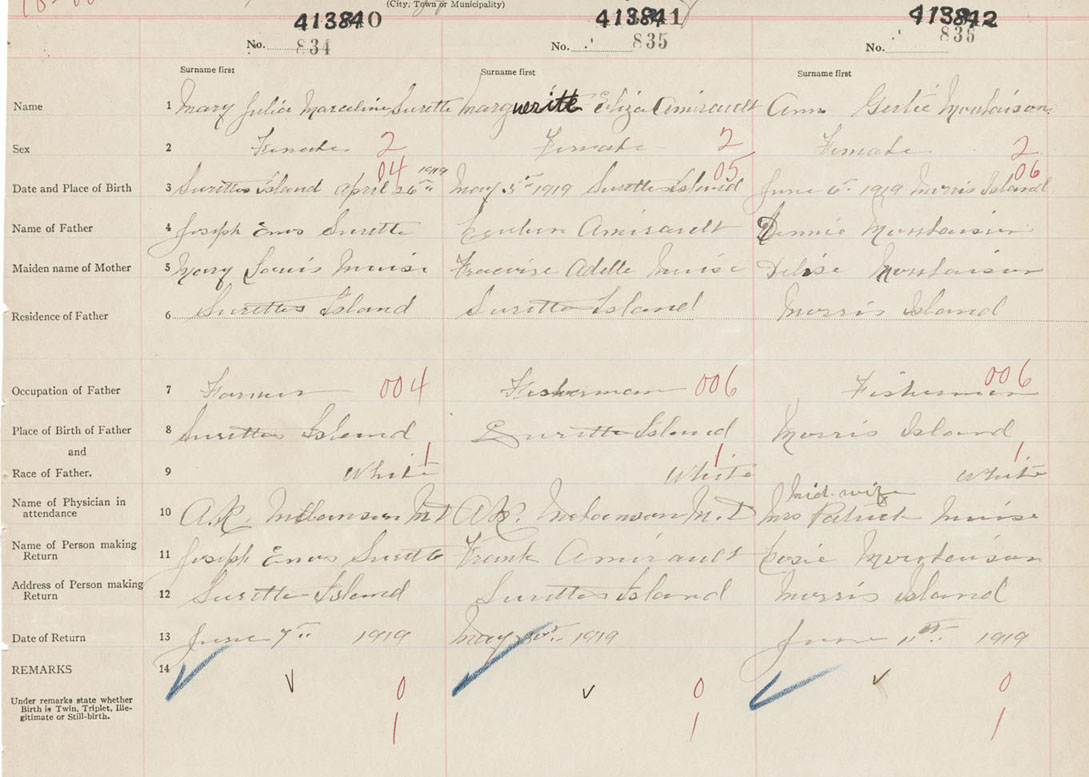 (City, Town or Municipality)
413840 413841 413842
No. 834 No. 835 No. 835
Surname first Surname first Surname first
Name 1 Mary Julia Marceline Surette Margueritte Eliza Amirault Ann Gertie Moulaison
Sex 2 Female 2 Female 2 Female 2
04 1919 05 06
Date and Place of Birth 3 Surettes Island April 26th May 5th 1919 Surettes Island June 6th 1919 Morris Island
Name of Father 4 Joseph Enos Surette Amirault Dennis Moulaison
Maiden name of Mother 5 Mary Louis Muise Adelle Muise Moulaison
Residence of Father 6 Surettes Island Surette Island Morris Island
Occupation of Father 7 Farmer 004 Fisherman 006 Fisherman 006
Place of Birth of Father 8 Surettes Island Surette Island Morris Island
and 1 1 1
Race of Father. 9 White White White
Name of Physician in attendance 10 A.R. M.D. A.R. M.D. Mid. wife Mrs Patrick Muise
Name of Person making Return 11 Joseph Enos Surette Frank Amirault Rosie Moulaison
Address of Person making Return 12 Surette Island Surettes Island Morris Island
Date of Return 13 June 7th 1919 May 1919 June 11th 1919
REMARKS 14
0 0 0
Under remarks state whether
Birth is Twin, Triplet, Ille-
gitimate or Still-birth.
1 1 1